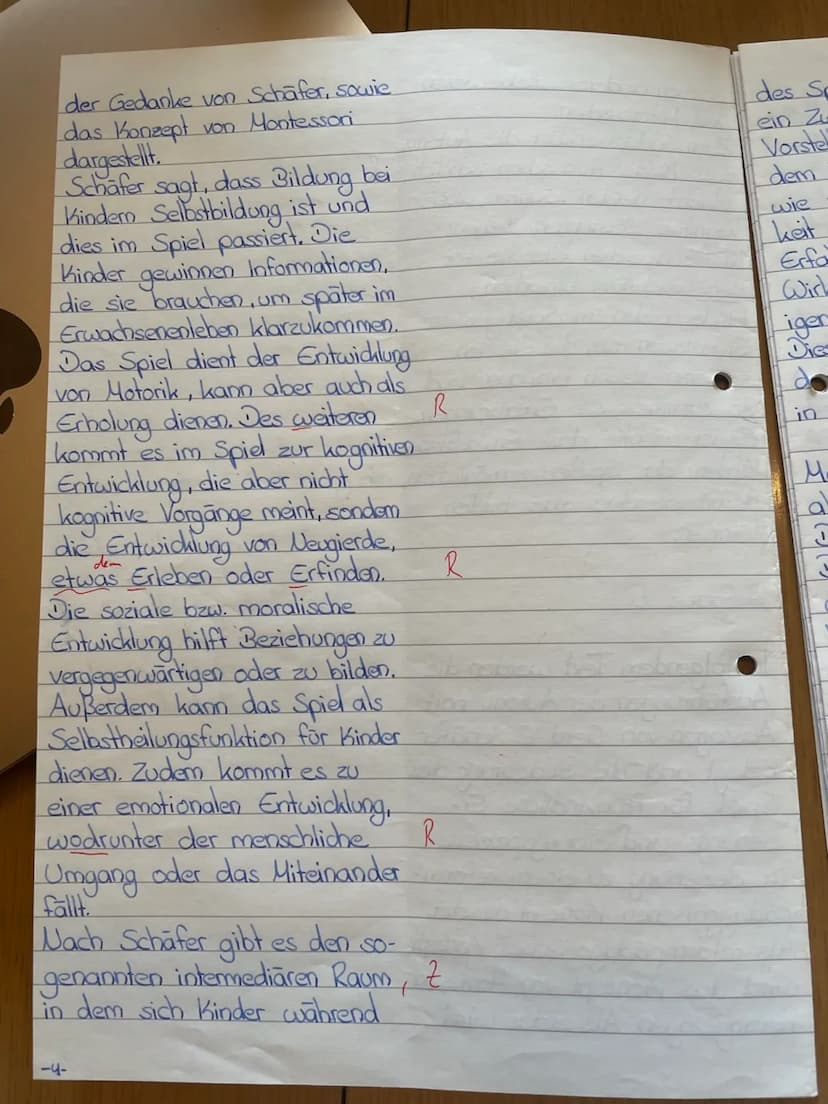 der Gedanke von Schäfer, sowie
das Konzept von Montessori
dargestellt.
Schäfer sagt, dass Bildung bei
Kindern Selbstbildung ist und
dies im Spiel passiert. Die
Kinder gewinnen Informationen,
die sie brauchen, um später im
Erwachsenenleben klarzukommen.
Das Spiel dient der Entwicklung
von Motorik, kann aber auch als
Erholung dienen. Des weiteren R
kommt es im Spiel zur kognitiven
Entwicklung, die aber nicht
kognitive Vorgänge meint, sondern
die Entwicklung von Neugierde,
dem
etwas Erleben oder Erfinden. R
Die soziale bzw. moralische
Entwicklung hilft Beziehungen zu
vergegenwärtigen oder zu bilden.
Außerdem kann das Spiel als
Selbstheilungsfunktion für Kinder
dienen. Zudem kommt es zu
einer emotionalen Entwicklung,
wodrunter der menschliche R
Umgang oder das Miteinander
fällt.
Nach Schäfer gibt es den so-
genannten intermediären Raum, Z
in dem sich Kinder während
-4-
des
ein
dem
wie
keit
in